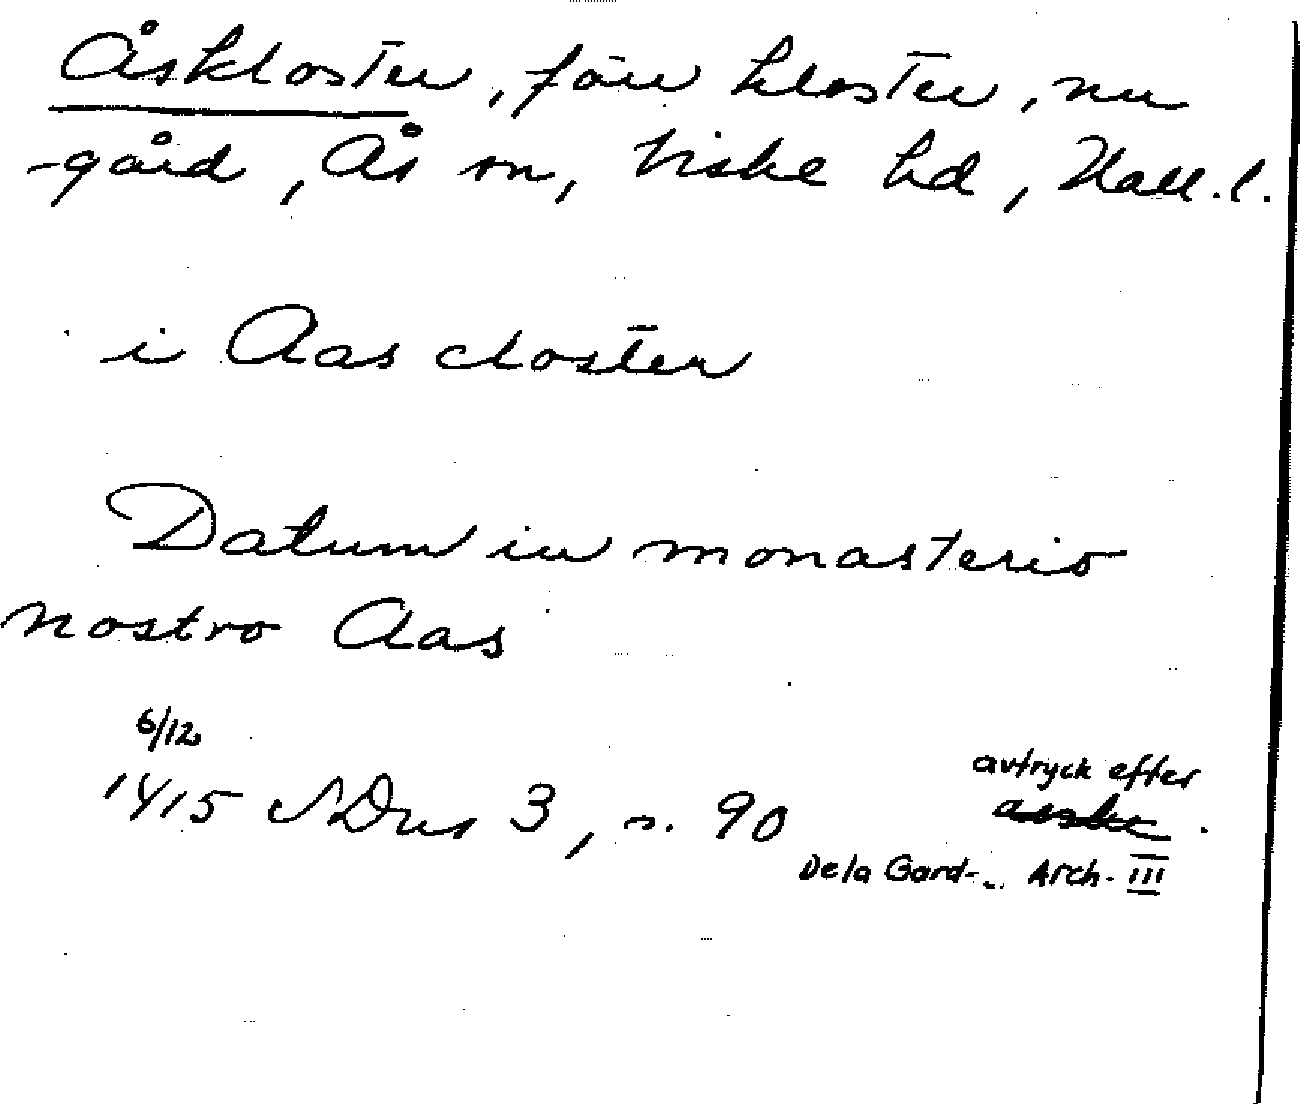 Åskloster, förr kloster, nu
-gård, Ås sn, Viske hd, Hall. l.
i Aas closter
Datum in monasterio
nostro Aas
6/12
1415 SDns 3, s. 90
avtryck efter
De la Gard. Arch. III